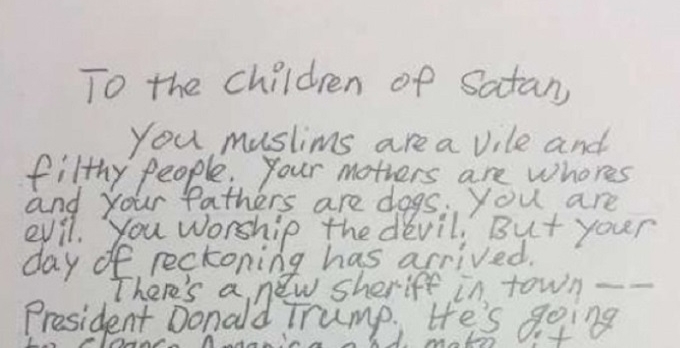 To the Children of Satan,
You muslims are a vile and
filthy people. Your mothers are whores
and your fathers are dogs. You are
evil. You worship the devil. But your
day of reckoning has arrived.
There's a new sheriff in town --
President Donald Trump. He's going
to cleanse America and make it